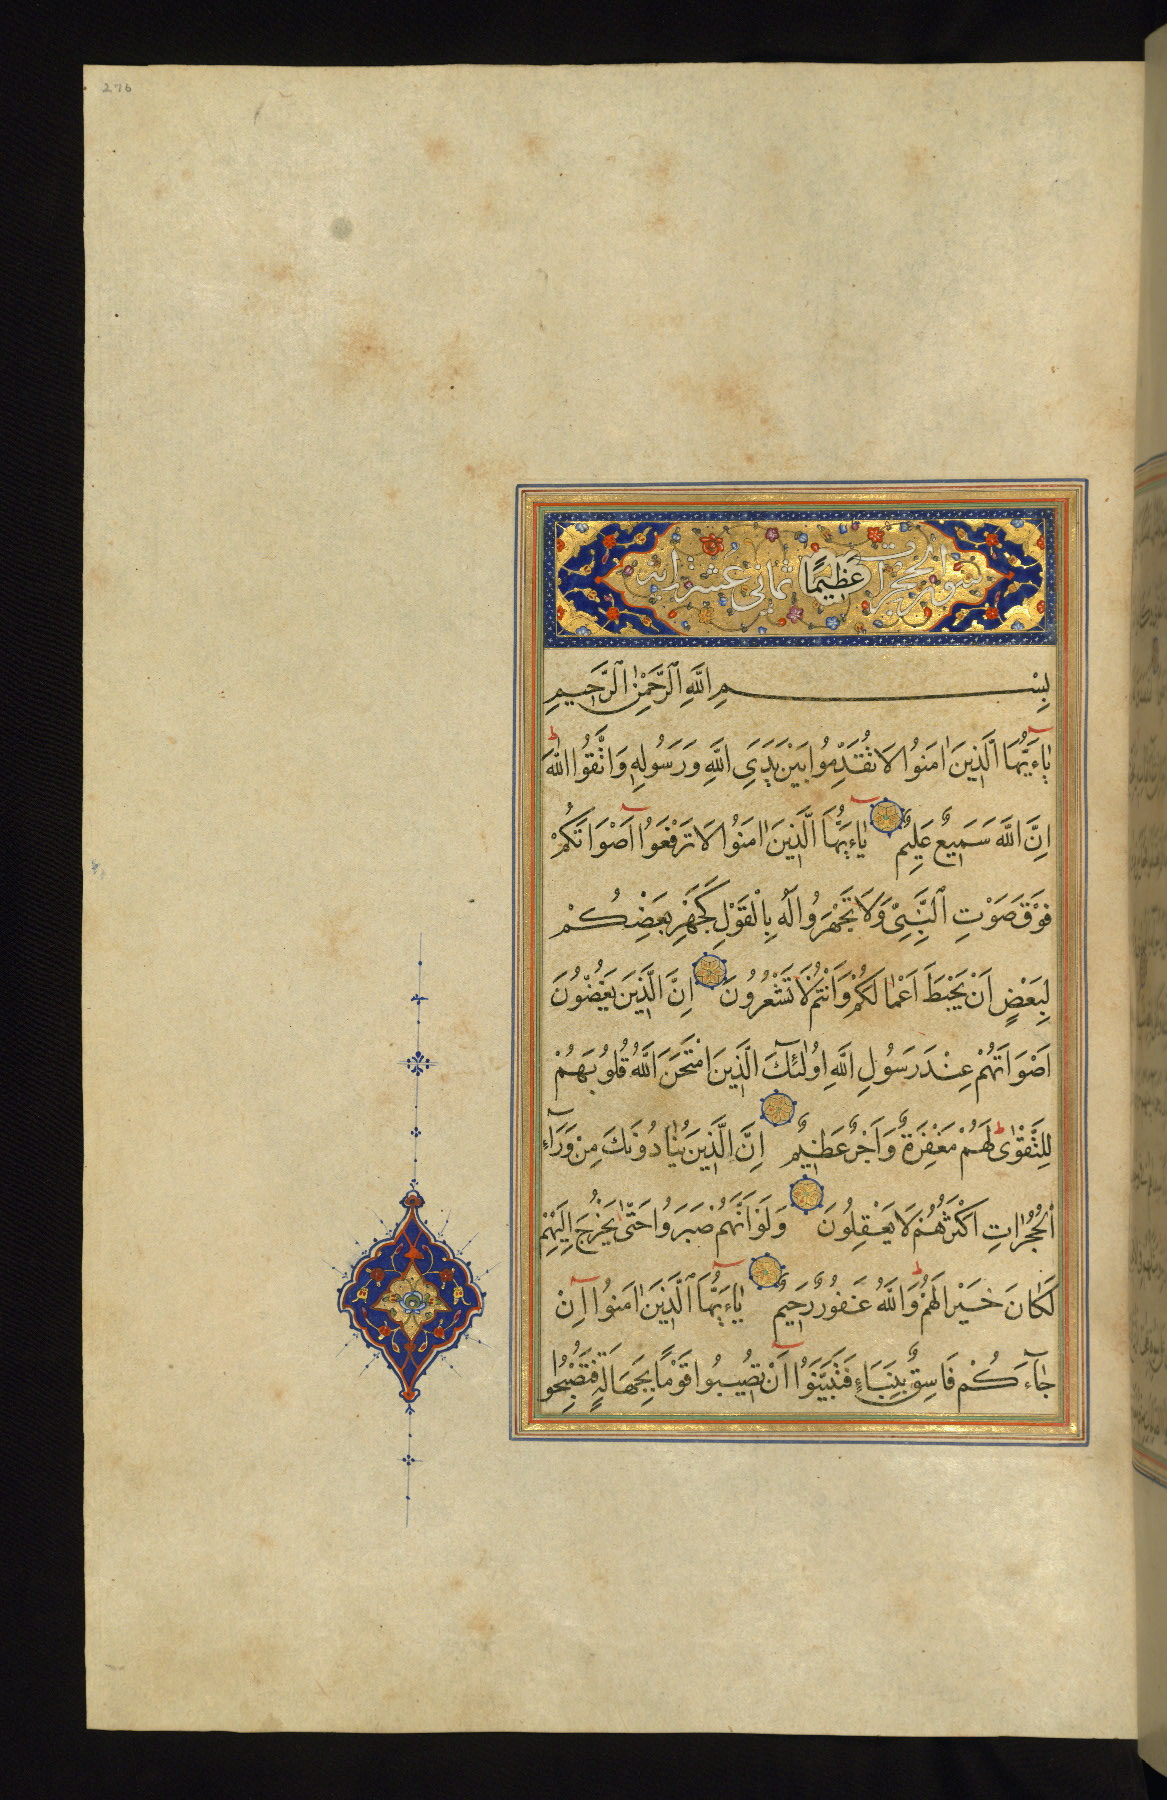 276
سورة الحجرات عَظِيمًا ثماني عشرة اية
بِسْمِ اللَّهِ الرَّحْمٰنِ الرَّحِيمِ
يٰاءَيُّهَا الَّذِينَ اٰمَنُوا لَا تُقَدِّمُوا بَيْنَ يَدَيِ اللَّهِ وَرَسُولِهِ وَاتَّقُوا اللّٰهَ ط
اِنَّ اللَّهَ سَمِيعٌ عَلِيمٌ يٰاءَيُّهَا الَّذِينَ اٰمَنُوا لَا تَرْفَعُوا اَصْوَاتَكُمْ
فَوْقَ صَوْتِ النَّبِيِّ وَلَا تَجْهَرُوا لَهُ بِالْقَوْلِ كَجَهْرِ بَعْضِكُمْ
لِبَعْضٍ اَنْ تَحْبَطَ اَعْمٰالُكُمْ وَاَنْتُمْ لَا تَشْعُرُونَ اِنَّ الَّذِينَ يَغُضُّونَ
اَصْوَاتَهُمْ عِنْدَ رَسُولِ اللَّهِ اُولٰئِكَ الَّذِينَ امْتَحَنَ اللَّهُ قُلُوبَهُمْ
لِلتَّقْوٰى ط لَهُمْ مَغْفِرَةٌ وَاَجْرٌ عَظِيمٌ اِنَّ الَّذِينَ يُنٰادُونَكَ مِنْ وَرَآءِ
الْحُجُرٰاتِ اَكْثَرُهُمْ لَا يَعْقِلُونَ وَلَوْ اَنَّهُمْ صَبَرُوا حَتّٰى تَخْرُجَ اِلَيْهِمْ
لَكٰانَ خَيْرًا لَهُمْ ط وَاللَّهُ غَفُورٌ رَحِيمٌ يٰاءَيُّهَا الَّذِينَ اٰمَنُوا اِنْ
جٰآءَكُمْ فَاسِقٌ بِنَبَاءٍ فَتَبَيَّنُوا اَنْ تُصِيبُوا قَوْمًا بِجَهَالَةٍ فَتُصْبِحُوا